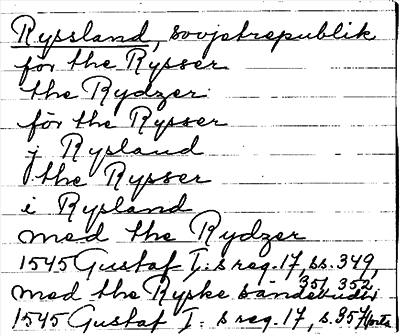 Ryssland, sovjetrepublik
för the Rysser
the Rydzer
för the Rysser
j Rysland
the Rysser
i Rysland
med the Rydzer
1545 Gustaf I:s reg. 17, ss. 349,
351, 352
med the Ryske sändebudh
1545 Gustaf I: s reg. 17, s. 357